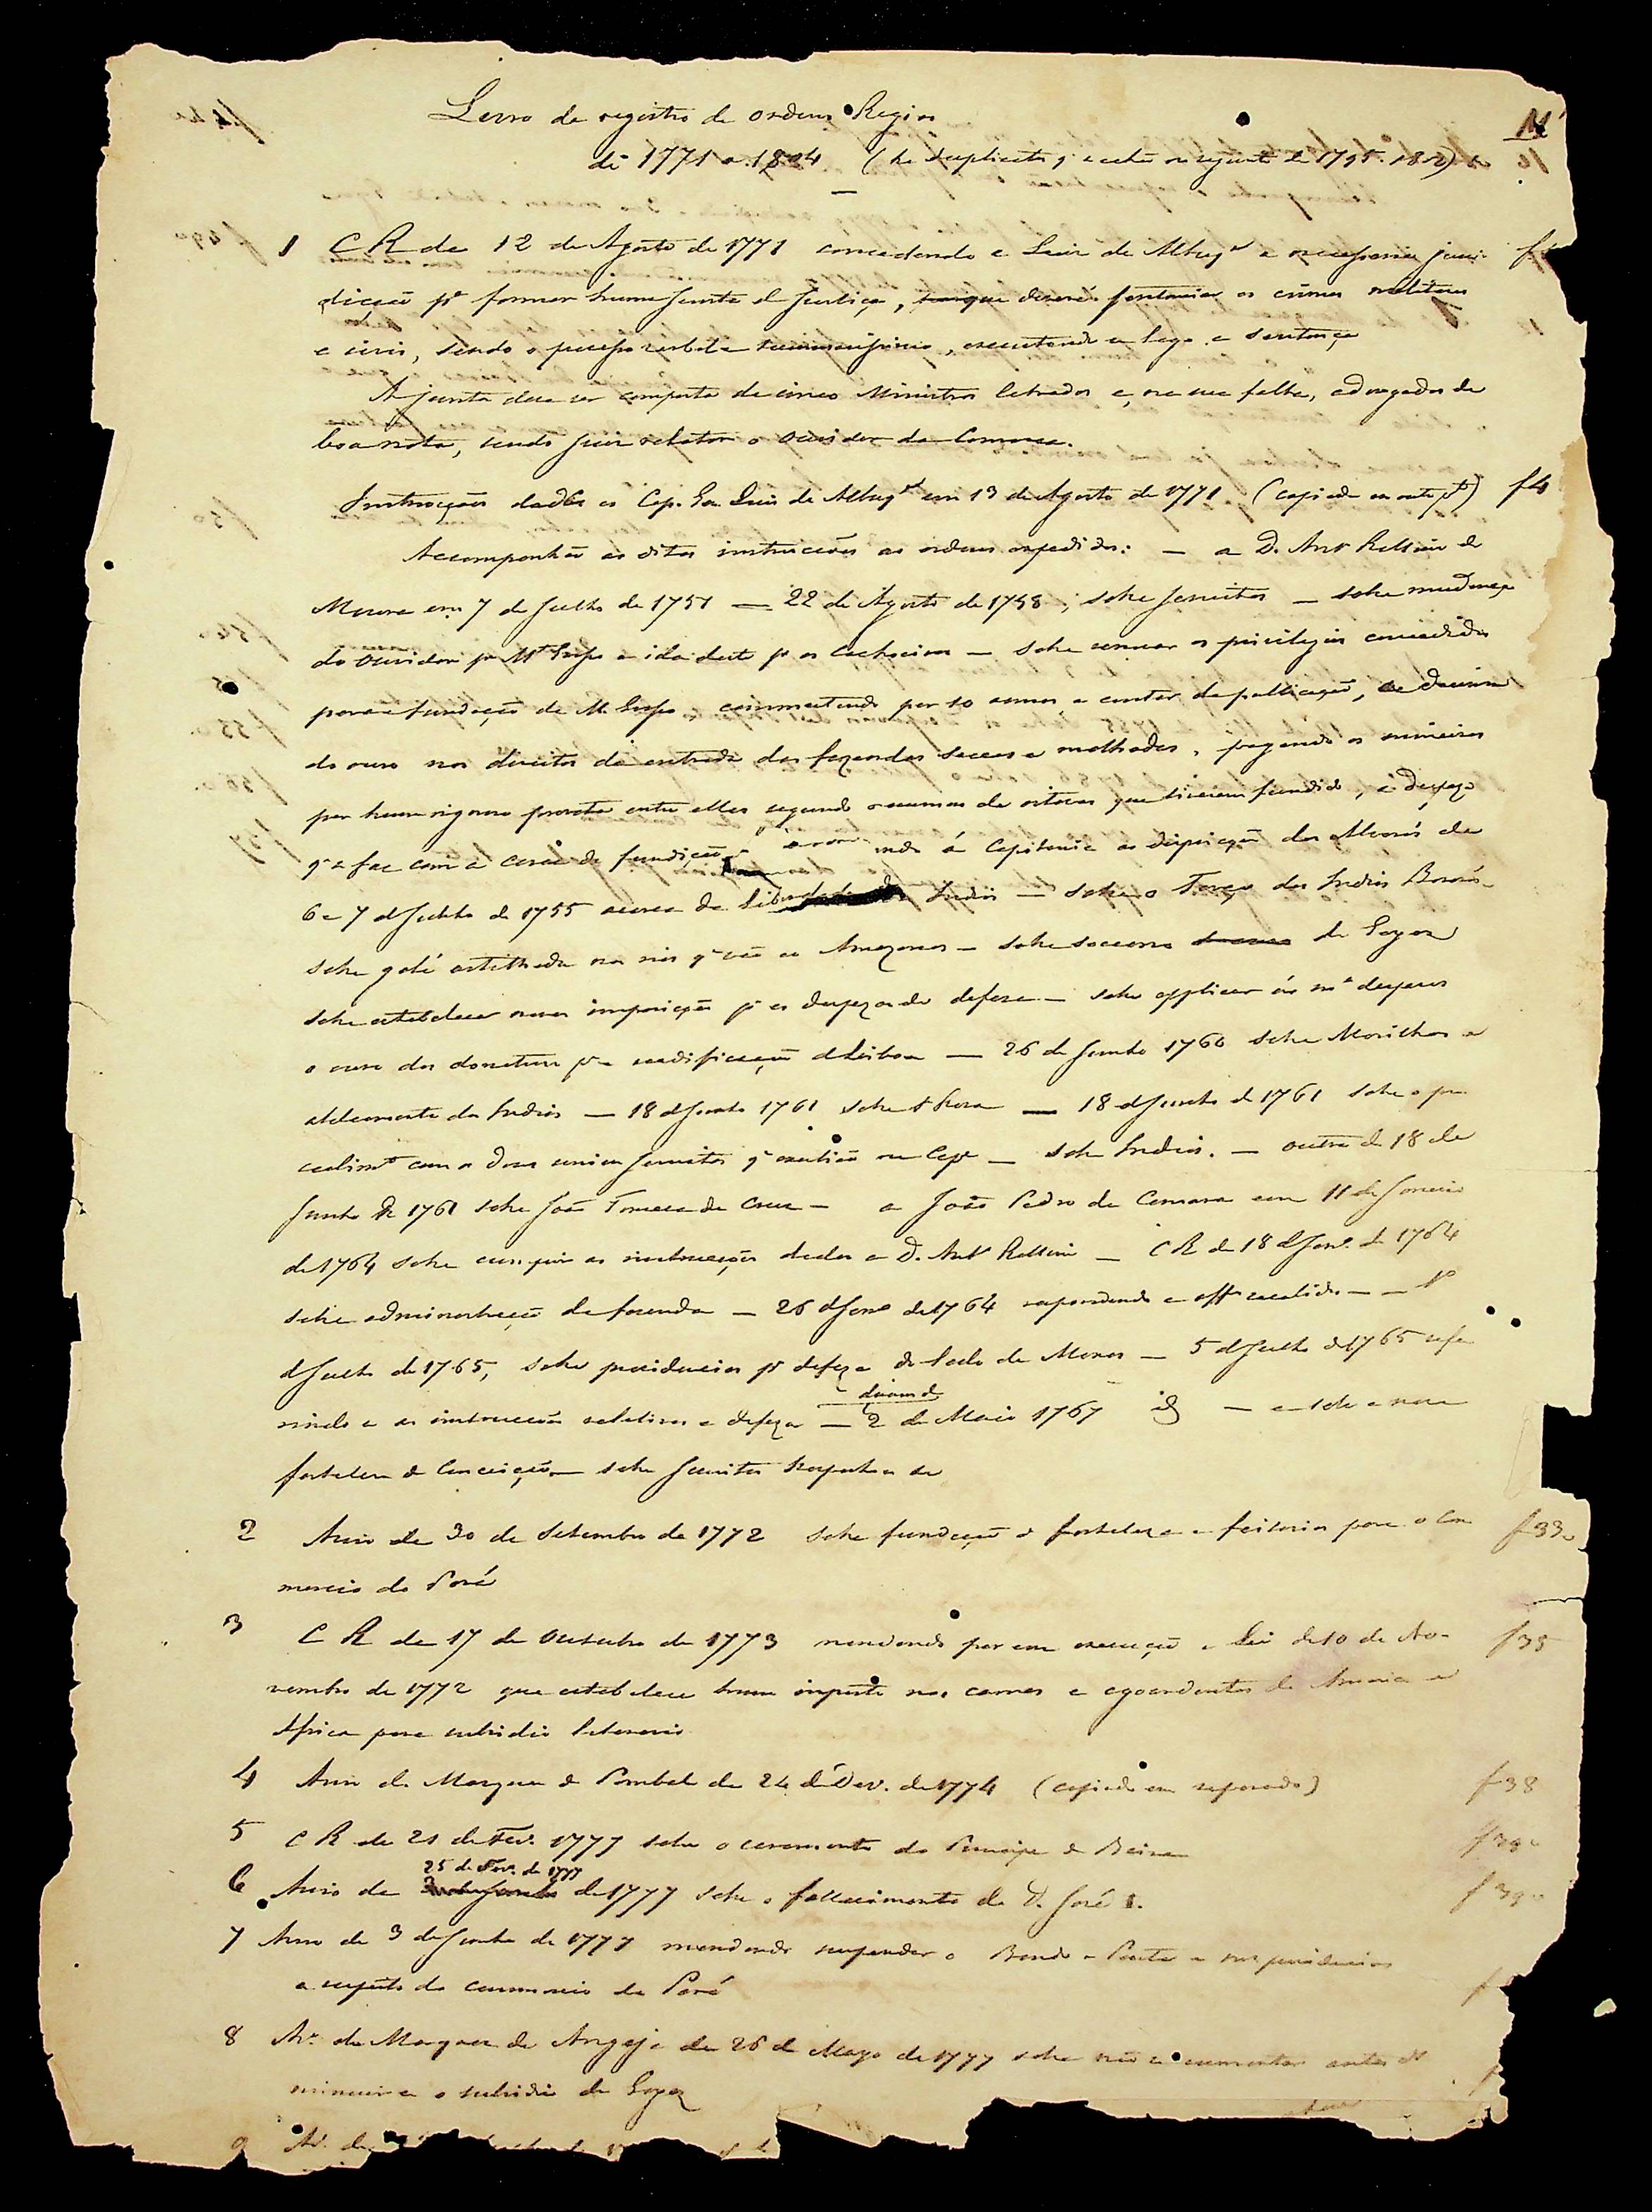 Livro de registro de ordens Regias
de 1771 a 1804 (ha duplicata q' 1795
1 C R de 12 de Agosto de 1771 concedendo a Luiz de Albuq.e a necessaria juris- f 1
dicção p.a formar huma Junta de Justiça, em que deverão sentenciar os crimes militares
e civis, sendo o processo verbal e summarissimo, executando-se logo a sentença
A junta deve ser composta de cinco Ministros letrados e, na sua falta, advogados de
boa nota, sendo Juiz relator o Ouvidor da Comarca.
Instrucções dadas ao Cap. Gen. Luiz de Albuq.e em 13 de Agosto de 1771 (copiada em outra p.te) f 4
Accompanhão as ditas instrucções as ordens expedidas: — a D. Ant.o Rollim de
Moura em 7 de Julho de 1757 — 22 de Agosto de 1758, sobre Jesuitas — sobre mudança
do Ouvidor p.a M.to Grosso e ida deste p.a as Cachoeiras — sobre renovar os privilegios concedidos
para a fundação de M. Grosso commutando por 10 annos, a contar da publicação, a decima
do ouro nos direitos de entrada das fazendas seccas e molhadas, pagando os mineiros
por huma rigorosa prorata entre elles segundo o numero de oitavas que tiverem fundido, a despeza
q' se faz com a casa de fundição á Capitania as disposições dos Alvarás de
6 e 7 de Julho de 1755 acerca da liberdade dos Indios — sobre o Terço dos Indios Bororós —
sobre galé artilhada nos rios q' vão ao Amazonas — sobre soccorro de Goyaz
sobre estabelecer novas imposições p.a as despezas de defesa — sobre applicar ás m.mas despezas
o ouro dos donativos p.a a reedificação de Lisboa — 26 de Junho 1760 sobre Morilhas e
aldeamento de Indios — 18 de Junho 1761 sobre S. Rosa — 18 de Junho de 1761 sobre o pro
cedim.to com os dous unicos Jesuitas q' existião na Cap.a — sobre Indios. — outra de 18 de
Junho de 1761 sobre João Fonseca da Cruz — a João Pedro da Camara em 11 de Janeiro
de 1764 sobre cumprir as instrucções dadas a D. Ant.o Rollim — C R de 18 de Jan.o de 1764
sobre administração da fazenda — 26 de Jan.o de 1764 respondendo a off.os recebidos — 1.o
de Julho de 1765, sobre providencias p.a defeza do lado de Moxos — 5 de Julho de 1765 refe
rindo-se as instrucções relativas a defeza — 2 de Maio 1767 id — e sobre a nova
fortaleza da Conceição — sobre Jesuitas
2 Aviso de 30 de Setembro de 1772 sobre fundação de fortaleza e feitorias para o Com f 33v
mercio do Pará
3 C R de 17 de Outubro de 1773 mandando por em execução a Lei de 10 de No- f 35
vembro de 1772 que estabelece hum imposto nas carnes e agoardentes da America e
Africa para subsidio litterario
4 Aviso do Marquez de Pombal de 24 de Dez. de 1774 (copiado em separado) f 38
5 C R de 21 de Fev. 1777 sobre o casamento do Principe da Beira f 39v
25 de Fev. de 1777
6 Aviso de de 1777 sobre o fallecimento de D. José I. f 39v
7 Aviso de 3 de Junho de 1777 mandando suspender o Bando e Pauta e mais providencias
a respeito do commercio do Pará f
8 Av. do Marquez de Angeja de 26 de Março de 1777 sobre não se aumentar antes di
minuir-se o subsidio de Goyaz f
9 Av. de